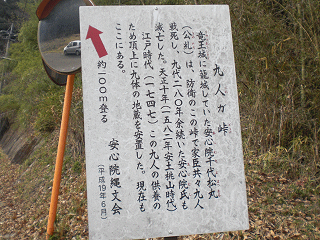 九人ヶ峠
竜王城に籠城していた安心院千代松丸
(公札)は、防衛のこの峠で家臣共々九人
戦死し、九代二八〇年余続いた安心院氏も
滅亡した。天正十年(一五八二年安土桃山時代)
江戸時代(一七四七)この九人の供養の
ため頂上に九体の地蔵を安置した。現在も
ここにある。
約一〇〇m登る
安心院縄文会
(平成19年6月)